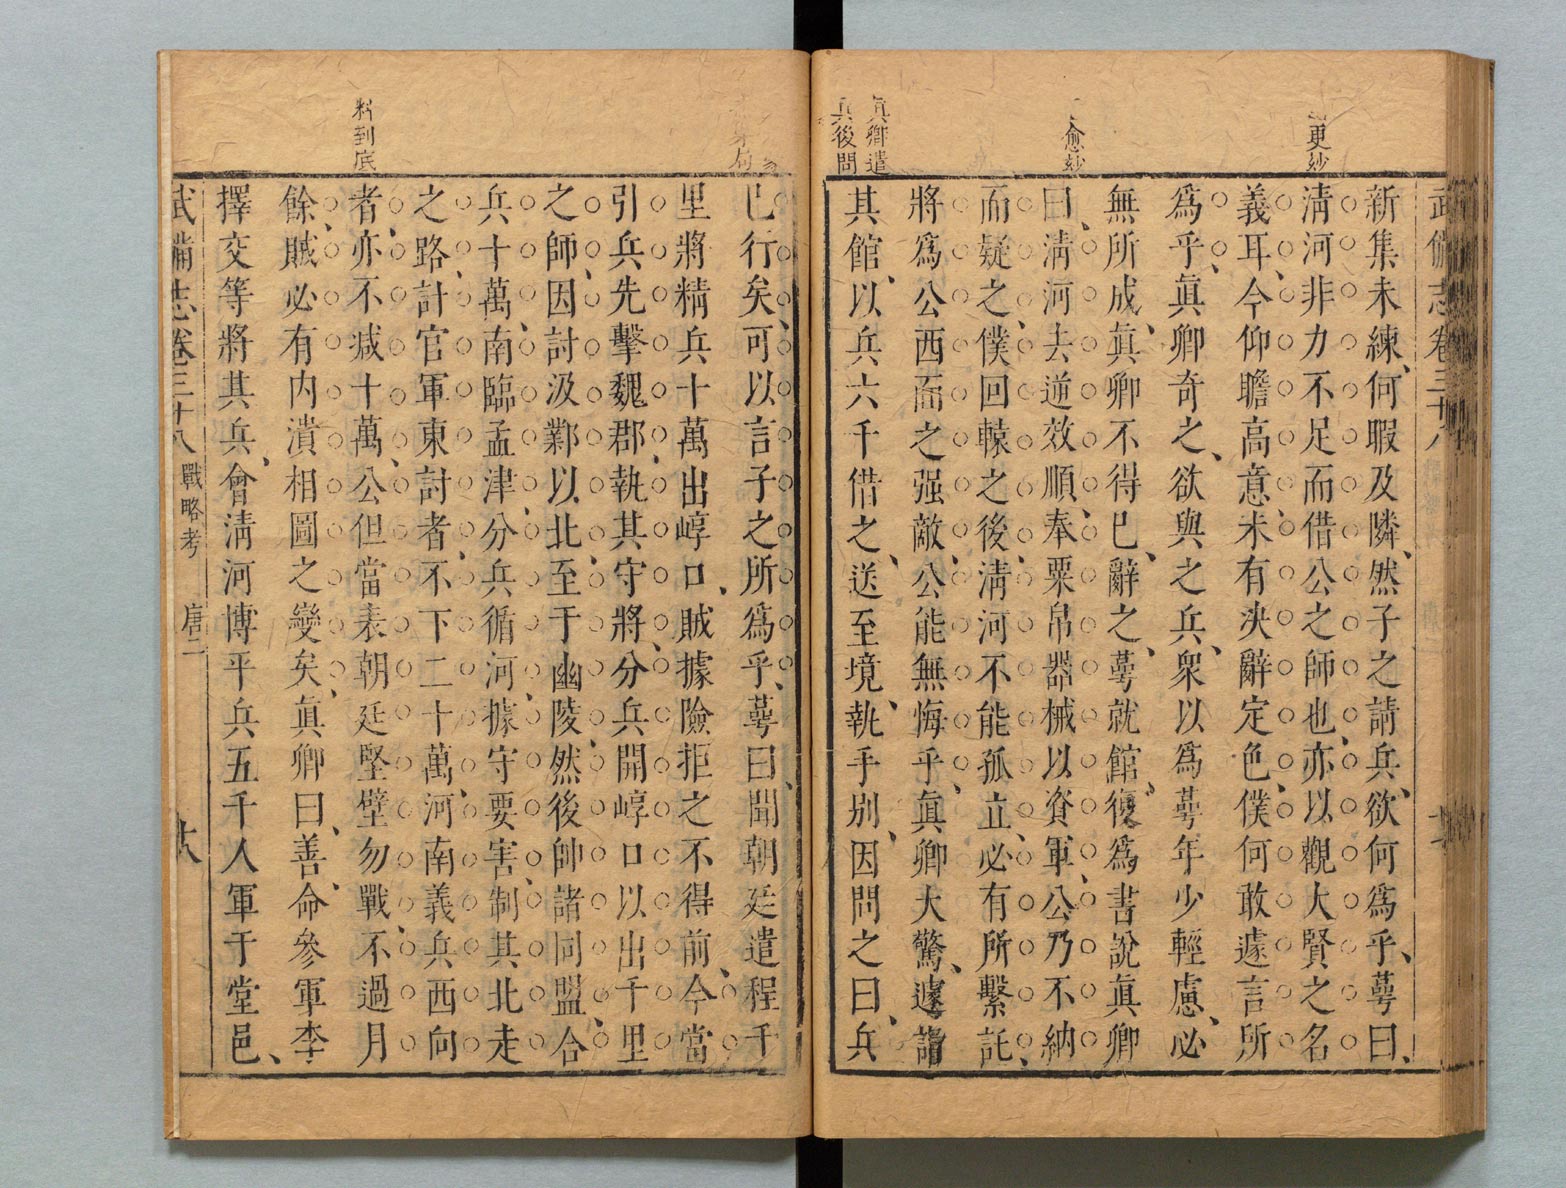 武備志卷三十八
更妙
愈妙
真卿遣
真後問
新集未練何暇及隣然子之請兵欲何爲乎蕚曰
清河非力不足而借公之師也亦以觀大賢之名
義耳今仰瞻高意未有決辭定色僕何敢遽言所
爲乎眞卿奇之欲與之兵衆以爲蕚年少輕慮必
無所成眞卿不得已辭之蕚就館復爲書說眞卿
曰清河去逆效順奉粟帛器械以資軍公乃不納
而疑之僕回轅之後清河不能孤立必有所繫託
將爲公西面之强敵公能無悔乎眞卿大驚遽詣
其館以兵六千借之送至境執手别因問之曰兵
已行矣可以言子之所爲乎蕚曰聞朝廷遣程千
里將精兵十萬出崞口賊據險拒之不得前今當
引兵先擊魏郡執其守將分兵開崞口以出千里
之師因討汲鄴以北至于幽陵然後帥諸同盟合
兵十萬南臨孟津分兵循河據守要害制其北走
之路計官軍東討者不下二十萬河南義兵西向
者亦不减十萬公但當表朝廷堅壁勿戰不過月
餘賊必有内潰相圖之變矣眞卿曰善命參軍李
擇交等將其兵會清河博平兵五千人軍于堂邑
料到底
武備志卷三十八 戰略考 唐二 六